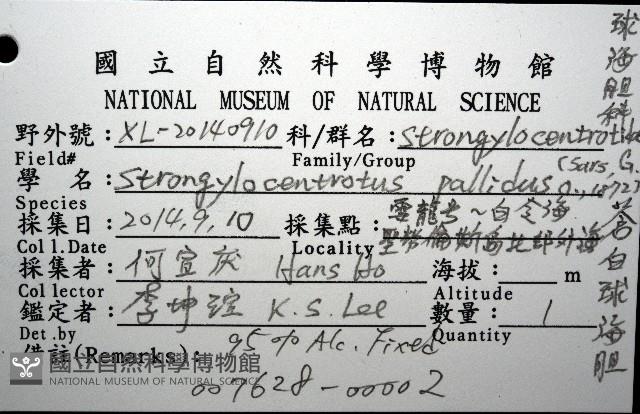 國立自然科學博物館
NATIONAL MUSEUM OF NATURAL SCIENCE
野外號: XL-20140910 科/群名: Strongylocentrotidae
Field# Family/Group
學 名: Strongylocentrotus pallidus (Sars, G.O., 1872)
Species
採集日: 2014, 9, 10 採集點: 雲龍号~白令海
聖勞倫斯島北部外海
Col l.Date Locality
採集者: 何宣庆 Hans Ho 海拔: m
Collector Altitude
鑑定者: 李坤瑄 K.S. Lee 數量: 1
Det .by Quantity
備註(Remarks): 95% Alc. Fixed
國立自然科學博物館
NATIONAL MUSEUM OF NATURAL SCIENCE
007628-00002
球海胆科
蒼白球海胆